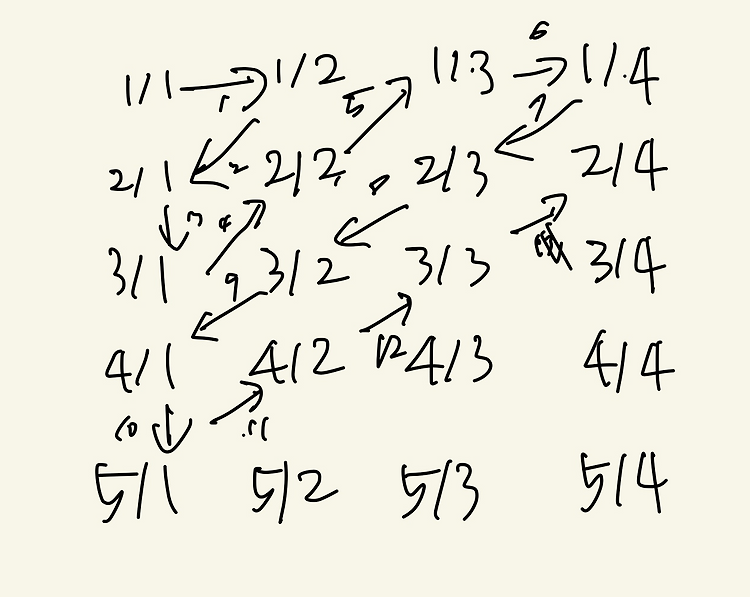 6
1/1 1/2 1/3 1/4
1 5 7
2/1 2 2/2 8 2/3 2/4
3 4
3/1 9 3/2 3/3 3/4
4/1 4/2 12 4/3 4/4
10 11
5/1 5/2 5/3 5/4